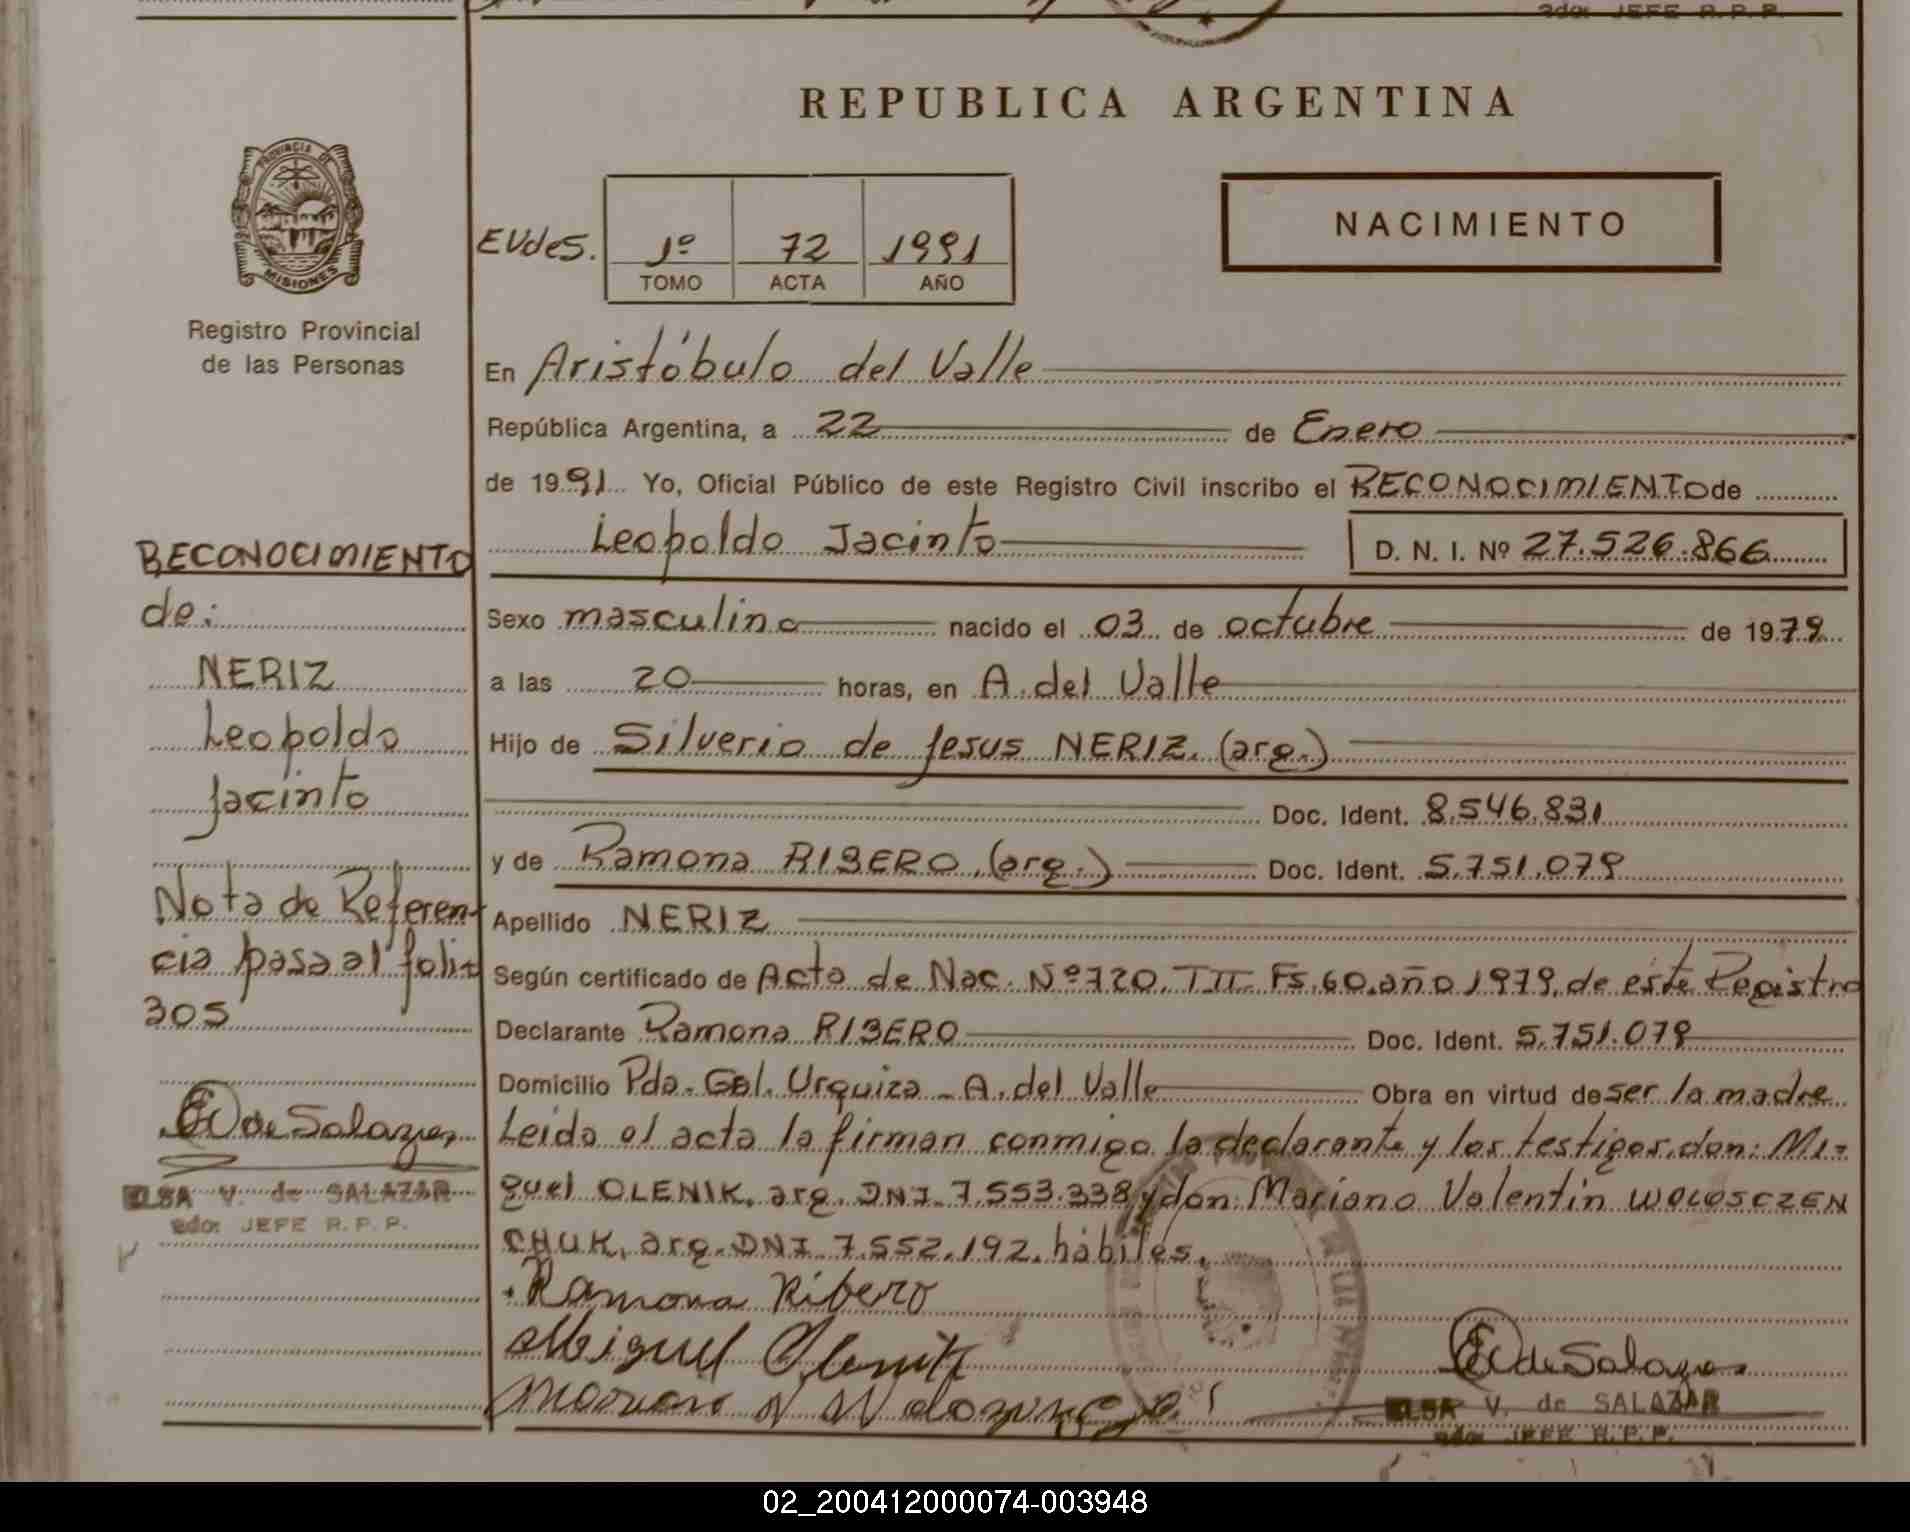 2do: JEFE R.P.P.
REPUBLICA ARGENTINA
PROVINCIA DE
MISIONES
Registro Provincial
de las Personas
EVdeS. 1º 72 1991
TOMO ACTA AÑO
NACIMIENTO
En Aristóbulo del Valle
República Argentina, a 22 de Enero
de 1991 Yo, Oficial Público de este Registro Civil inscribo el RECONOCIMIENTO de
Leopoldo Jacinto D. N. I. Nº 27.526.866
Sexo masculino nacido el 03 de octubre de 1979
a las 20 horas, en A. del Valle
Hijo de Silverio de Jesus NERIZ. (arg.)
Doc. Ident. 8.546.831
y de Ramona RIBERO, (arg.) Doc. Ident. 5.751.079
Apellido NERIZ
Según certificado de Acta de Nac. Nº 720. TII. Fs. 60. año 1979, de este Registro
Declarante Ramona RIBERO Doc. Ident. 5.751.079
Domicilio Pdo. Gal. Urquiza - A. del Valle Obra en virtud de ser la madre
Leida el acta la firman conmigo la declarante y los testigos, don: Mi-
guel OLENIK, arg. DNI. 7.553.338 y don: Mariano Valentin WOLOSCZEN
CHUK, arg. DNI 7.552.192. hábiles.
Ramona Ribero
Miguel Olenik
EVdeSalazar
ELSA V. de SALAZAR
2do: JEFE R.P.P.
RECONOCIMIENTO
de:
NERIZ
Leopoldo
Jacinto
Nota de Referen-
cia pasa al folio
305
EVdeSalazar
ELSA V. de SALAZAR
2do: JEFE R.P.P.
02_200412000074-003948